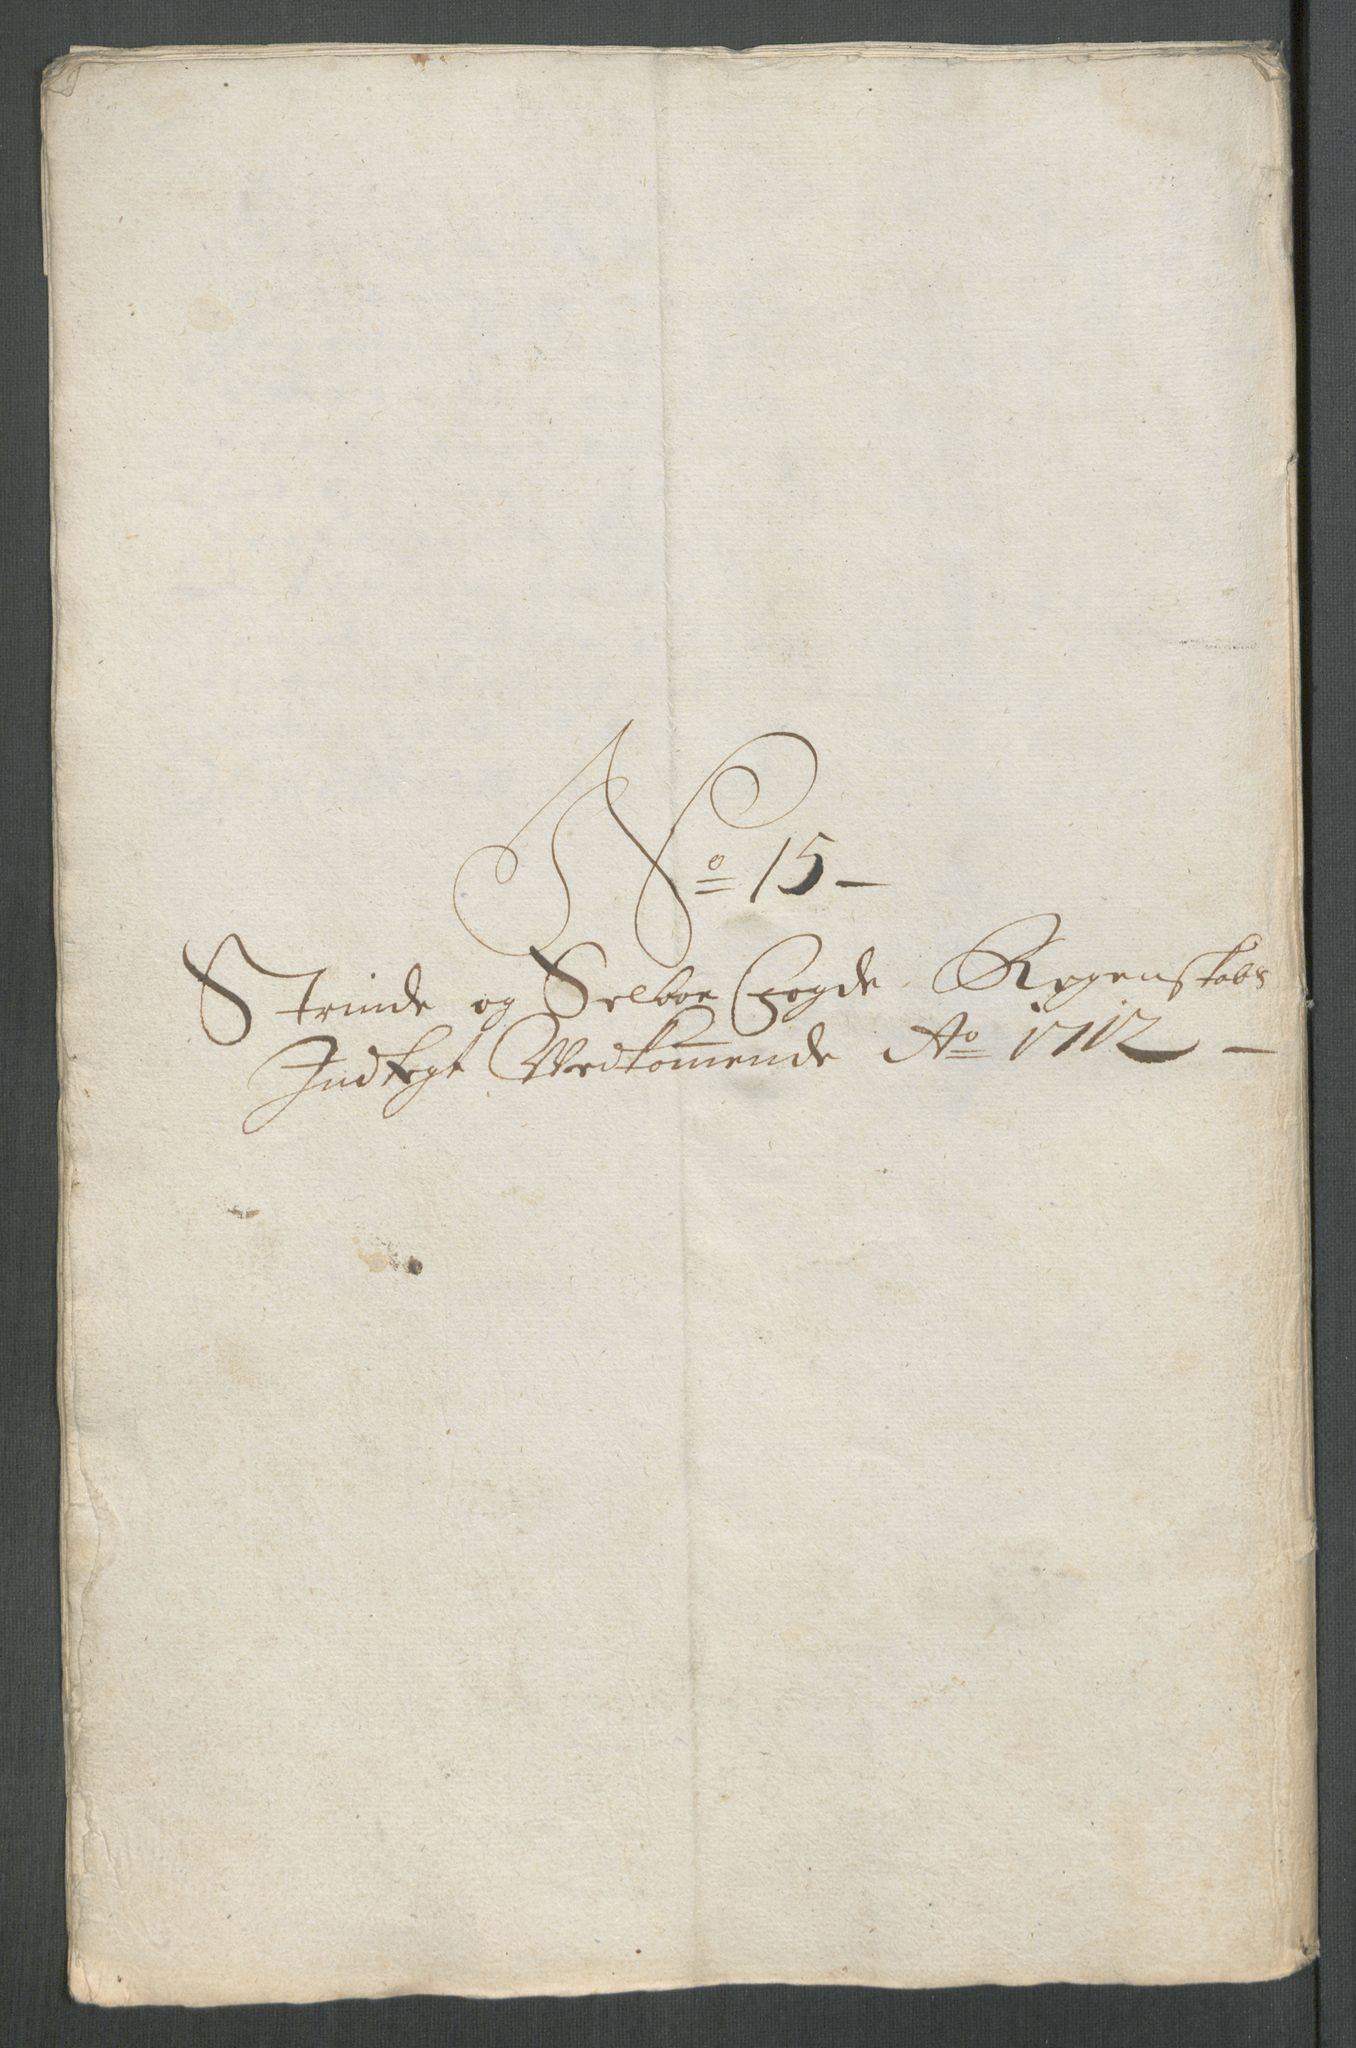 No 15 –
Strinde og Selboe Fogde Regenskabs
Indtegt Vedkommende Ao 1712 –